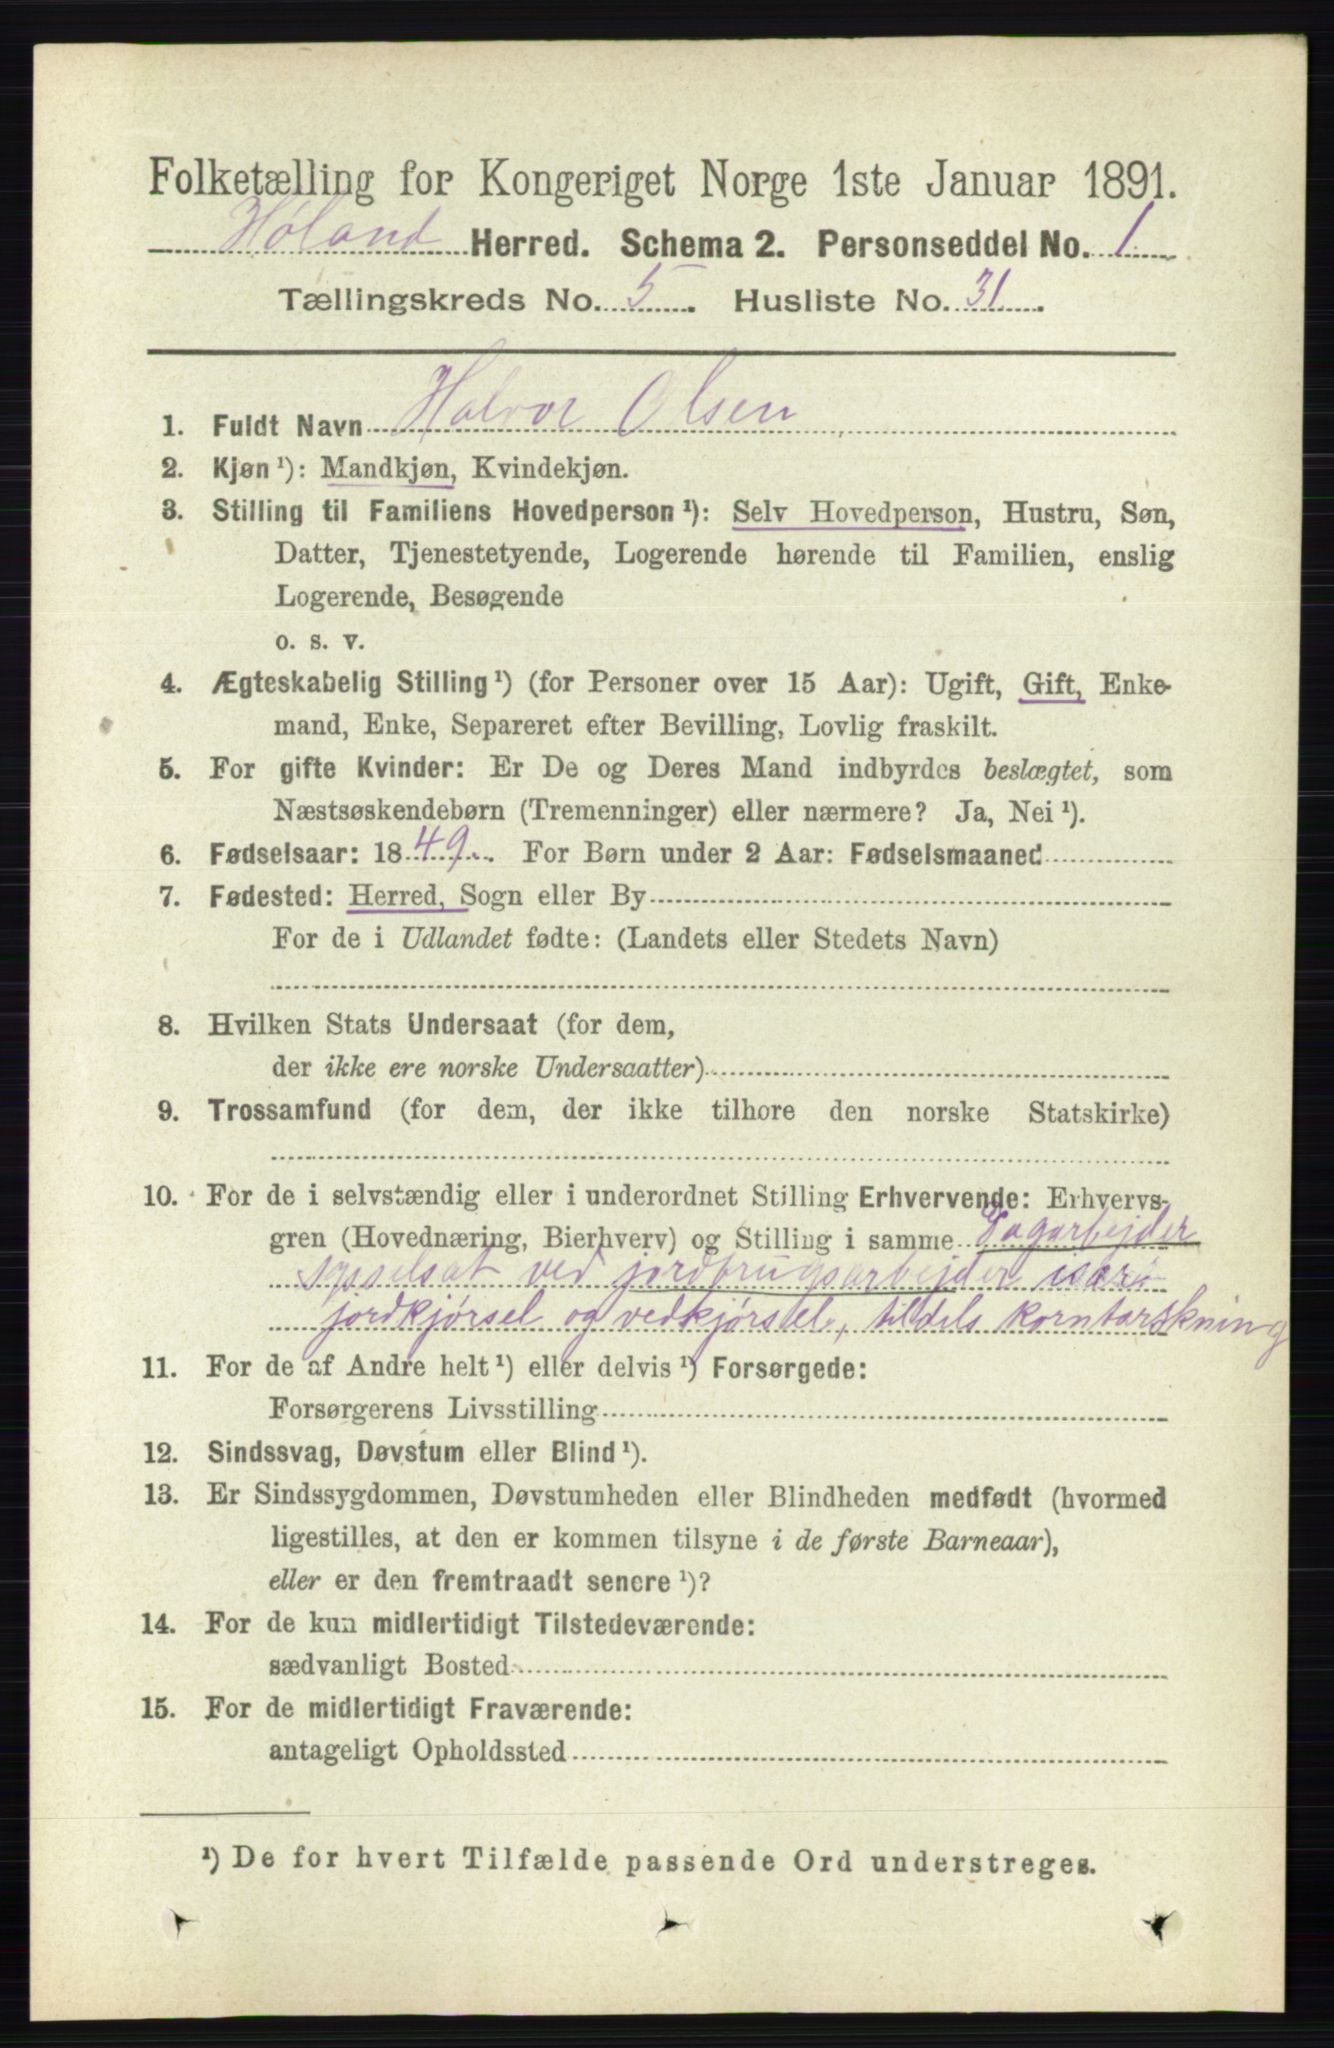 Folketælling for Kongeriget Norge 1ste Januar 1891.
Høland Herred. Schema 2. Personseddel No. 1
Tællingskreds No. 5. Husliste No. 31.
1. Fuldt Navn Halvor Olsen
2. Kjøn ¹): Mandkjøn, Kvindekjøn.
3. Stilling til Familiens Hovedperson ¹): Selv Hovedperson, Hustru, Søn,
Datter, Tjenestetyende, Logerende hørende til Familien, enslig
Logerende, Besøgende
o. s. v.
4. Ægteskabelig Stilling ¹) (for Personer over 15 Aar): Ugift, Gift, Enke-
mand, Enke, Separeret efter Bevilling, Lovlig fraskilt.
5. For gifte Kvinder: Er De og Deres Mand indbyrdes beslægtet, som
Næstsøskendebørn (Tremenninger) eller nærmere? Ja, Nei ¹).
6. Fødselsaar: 1849. For Børn under 2 Aar: Fødselsmaaned
7. Fødested: Herred, Sogn eller By
For de i Udlandet fødte: (Landets eller Stedets Navn)
8. Hvilken Stats Undersaat (for dem,
der ikke ere norske Undersaatter)
9. Trossamfund (for dem, der ikke tilhøre den norske Statskirke)
10. For de i selvstændig eller i underordnet Stilling Erhvervende: Erhvervs-
gren (Hovednæring, Bierhverv) og Stilling i samme Dagarbejder
sysselsat ved jordbrugsarbejder især i
jordkjørsel og vedkjørsel, tildels korntærskning
11. For de af Andre helt ¹) eller delvis ¹) Forsørgede:
Forsørgerens Livsstilling
12. Sindssvag, Døvstum eller Blind ¹).
13. Er Sindssygdommen, Døvstumheden eller Blindheden medfødt (hvormed
ligestilles, at den er kommen tilsyne i de første Barneaar),
eller er den fremtraadt senere ¹)?
14. For de kun midlertidigt Tilstedeværende:
sædvanligt Bosted
15. For de midlertidigt Fraværende:
antageligt Opholdssted
¹) De for hvert Tilfælde passende Ord understreges.